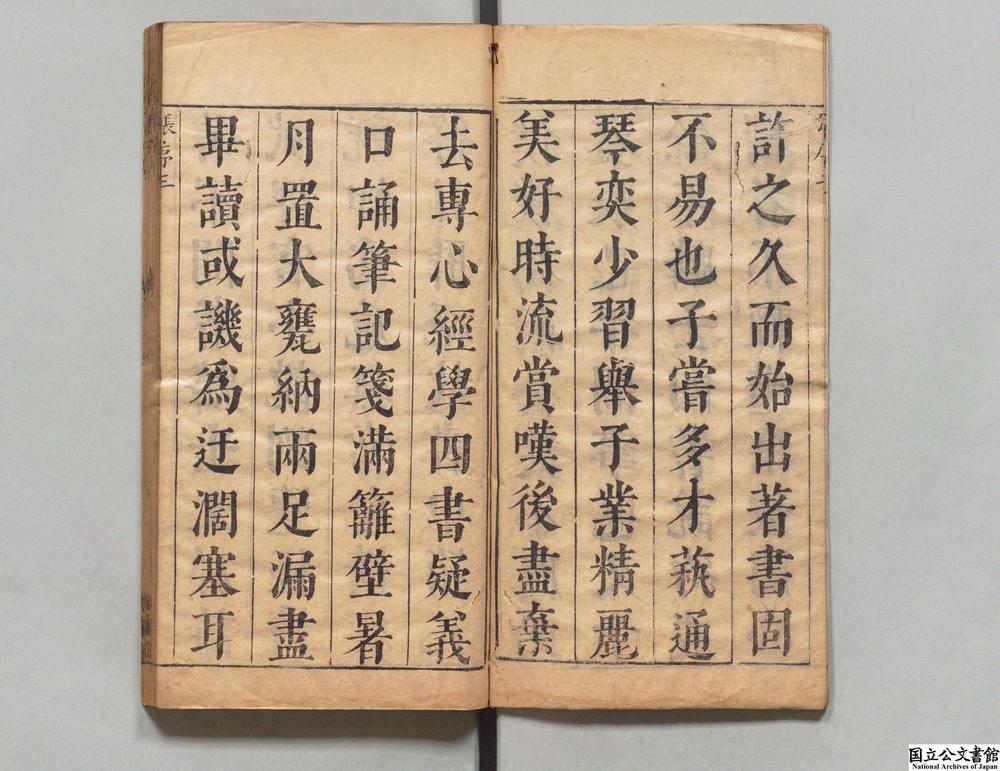 許之久而始出著書固
不易也子嘗多才蓺通
琴奕少習舉子業精麗
美好時流賞嘆後盡棄
去專心經學四書疑義
口誦筆記箋滿籬壁暑
月置大甕納兩足漏盡
畢讀或譏為迂濶塞耳
張序三
国立公文書館
National Archives of Japan